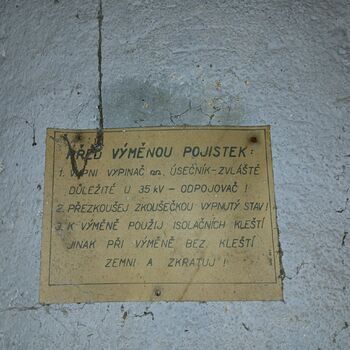 PŘED VÝMĚNOU POJISTEK:
1. VYPNI VYPINAČ úsečník-ZVLÁŠTĚ
DŮLEŽITÉ U 35 kV - ODPOJOVAČ!
2. PŘEZKOUŠEJ ZKOUŠEČKOU VYPNUTÝ STAV!
3. K VÝMĚNĚ POUŽIJ ISOLAČNÍCH KLEŠTÍ
JINAK PŘI VÝMĚNĚ BEZ KLEŠTÍ
ZEMNI A ZKRATUJ!